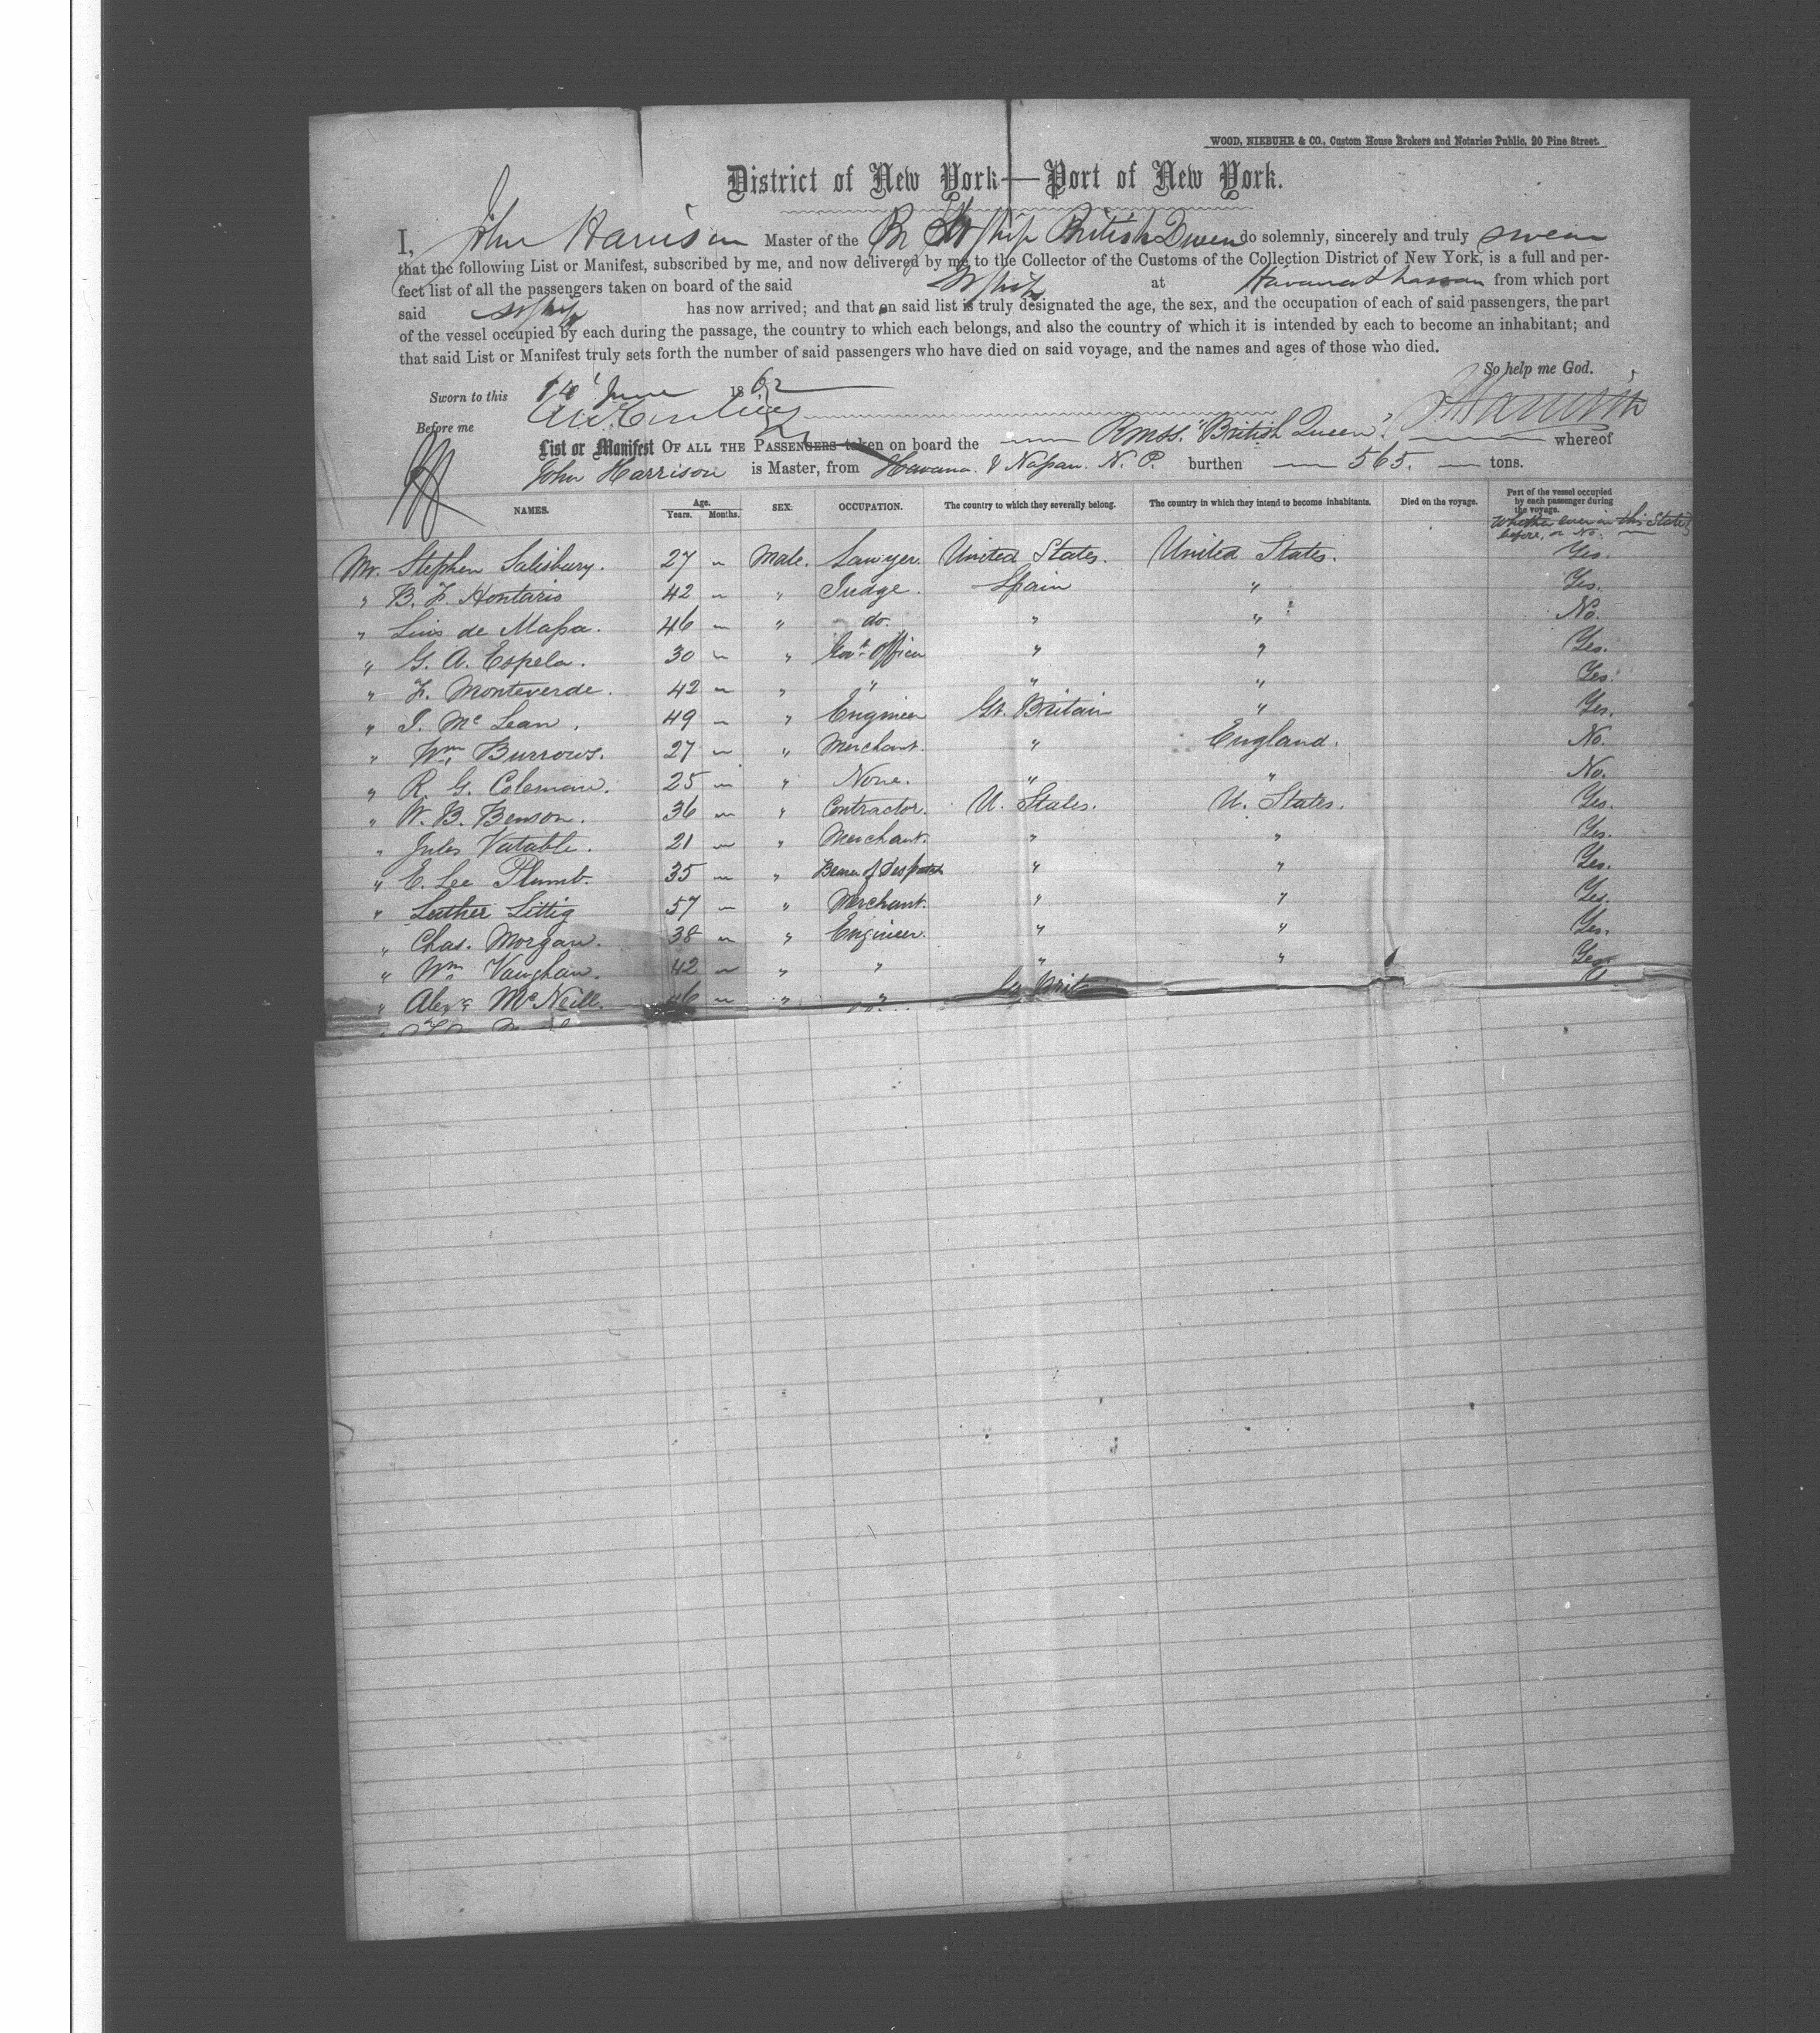 WOOD, NIEBUHR & CO., Custom House Brokers and Notaries Public, 20 Pine Street.
District of New York—Port of New York.
I, John Harrison Master of the Br St Ship British Queen do solemnly, sincerely and truly swear
that the following List or Manifest, subscribed by me, and now delivered by me to the Collector of the Customs of the Collection District of New York, is a full and per-
fect list of all the passengers taken on board of the said St Ship at Havana & Nassau from which port
said St Ship has now arrived; and that on said list is truly designated the age, the sex, and the occupation of each of said passengers, the part
of the vessel occupied by each during the passage, the country to which each belongs, and also the country of which it is intended by each to become an inhabitant; and
that said List or Manifest truly sets forth the number of said passengers who have died on said voyage, and the names and ages of those who died.
So help me God.
Sworn to this 14 June 1862
J Harrison
Before me
List or Manifest OF ALL THE PASSENGERS taken on board the RMSS. "British Queen" whereof
John Harrison is Master, from Havana & Nassau. N. P. burthen 565. tons.
NAMES. Age. Years. Months. SEX. OCCUPATION. The country to which they severally belong. The country in which they intend to become inhabitants. Died on the voyage. Part of the vessel occupied by each passenger during the voyage.
Whether ever in this State before, or No.
Mr. Stephen Salisbury. 27 " Male. Lawyer. United States. United States. Yes.
" B. F. Hontario 42 " " Judge. Spain " Yes.
" Luis de Massa. 46 " " do. " " No.
" G. A. Espela. 30 " " Govt Officer " " Yes.
" F. Monteverde. 42 " " " " " Yes.
" J. Mc Lean. 49 " " Engineer Gt. Britain " Yes.
" Wm. Burrows. 27 " " Merchant. " England. No.
" R. G. Coleman. 25 " " None. " " No.
" W. B. Benson. 36 " " Contractor. U. States. U. States. Yes.
" Jules Vatable. 21 " " Merchant. " " Yes.
" E. Lee Plumb. 35 " " Bearer of Despatch " " Yes.
" Luther Littig 57 " " Merchant. " " Yes.
" Chas. Morgan. 38 " " Engineer. " " Yes.
" Wm. Vaughan. 42 " " " " " Yes.
" Alexr. McNeill. 46 " " " Gt Brit